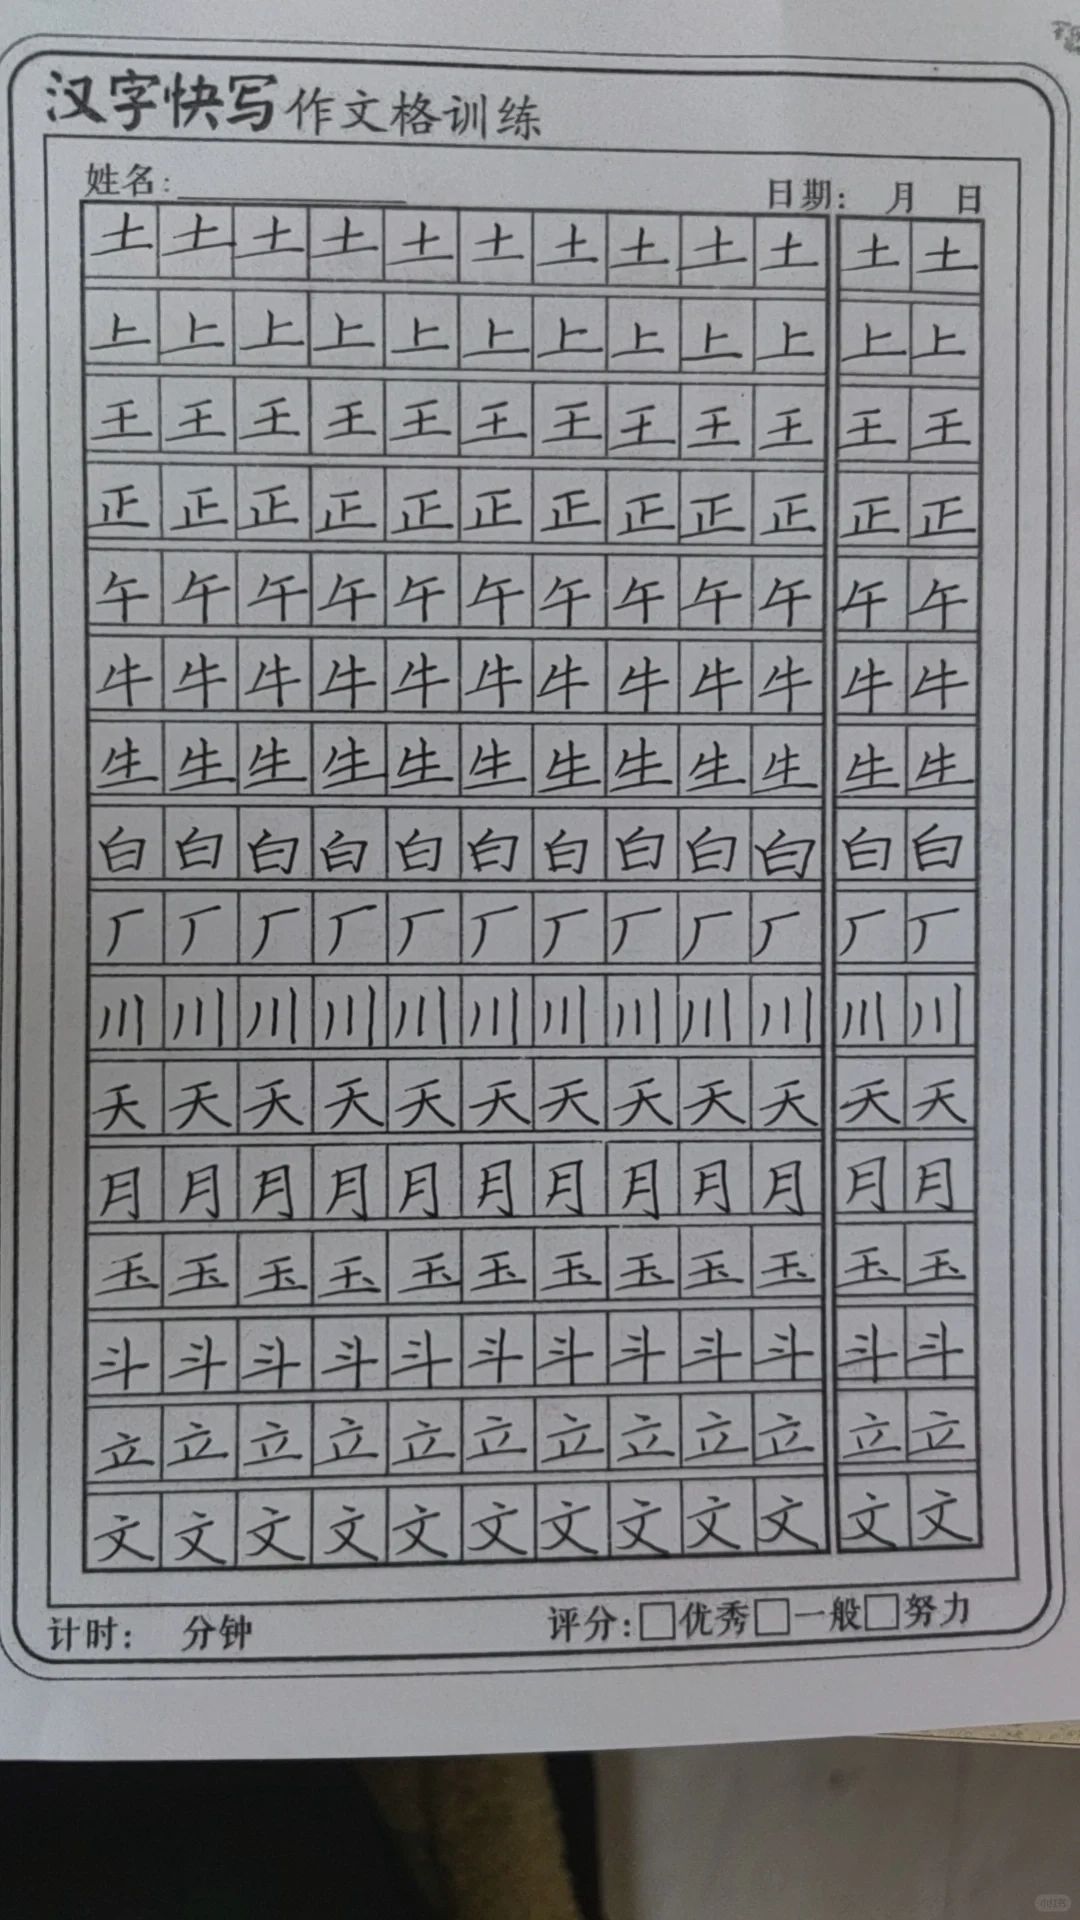 汉字快写作文格训练
姓名: 日期: 月 日
土土土土土土土土土土土土
上上上上上上上上上上上上
王王王王王王王王王王王王
正正正正正正正正正正正正
午午午午午午午午午午午午
牛牛牛牛牛牛牛牛牛牛牛牛
生生生生生生生生生生生生
白白白白白白白白白白白白
厂厂厂厂厂厂厂厂厂厂厂厂
川川川川川川川川川川川川
天天天天天天天天天天天天
月月月月月月月月月月月月
玉玉玉玉玉玉玉玉玉玉玉玉
斗斗斗斗斗斗斗斗斗斗斗斗
立立立立立立立立立立立立
文文文文文文文文文文文文
计时: 分钟 评分:□优秀□一般□努力
小红书